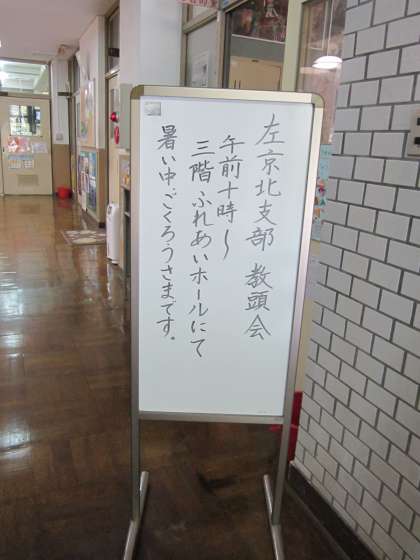 左京北支部 教頭会
午前十時〜
三階ふれあいホールにて
暑い中、ごくろうさまです。